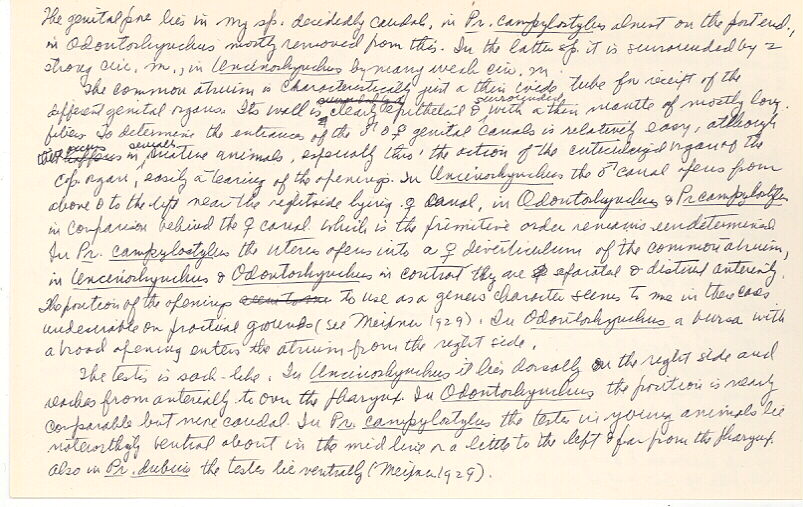 The genital pore lies in my sp. decidedly caudal, in Pr. campylostylus almost on the post end.,
in Odontorhynchus mostly removed from this. In the latter sp. it is surrounded by 2
strong circ. m., in Uncinorhynchus by many weak circ. m.
The common atrium is characteristically just a thin wide tube for receipt of the
different genital organs. Its wall is clearly epithelial & surrounded with a thin mantle of mostly long.
fibers. To determine the entrances of the ♂ & ♀ genital canals is relatively easy, although
occurs in sexually mature animals, especially thru the action of the cuticularized organ of the
cop. organ, easily a tearing of the openings. In Uncinorhynchus the ♂ canal opens from
above & to the left near the rightside lying ♀ canal, in Odontorhynchus & Pr campylostylus
in comparison behind the ♀ canal. which is the primitive order remains undetermined
In Pr. campylostylus the uterus opens into a ♀ diverticulum of the common atrium,
in Uncinorhynchus & Odontorhynchus in contrast they are separated & distinct anteriorly.
The position of the openings to use as a generic character seems to me in these cases
undesirable on practical grounds (see Meixner 1929). In Odontorhynchus a bursa with
a broad opening enters the atrium from the right side.
The testis is sack-like. In Uncinorhynchus it lies dorsally on the right side and
reaches from anteriorly to over the pharynx. In Odontorhynchus the position is nearly
comparable but more caudal. In Pr. campylostylus the testes in young animals lie
noteworthily ventral about in the mid line or a little to the left & far from the pharynx.
Also in Pr. dubius the testes lie ventrally (Meixner 1929).